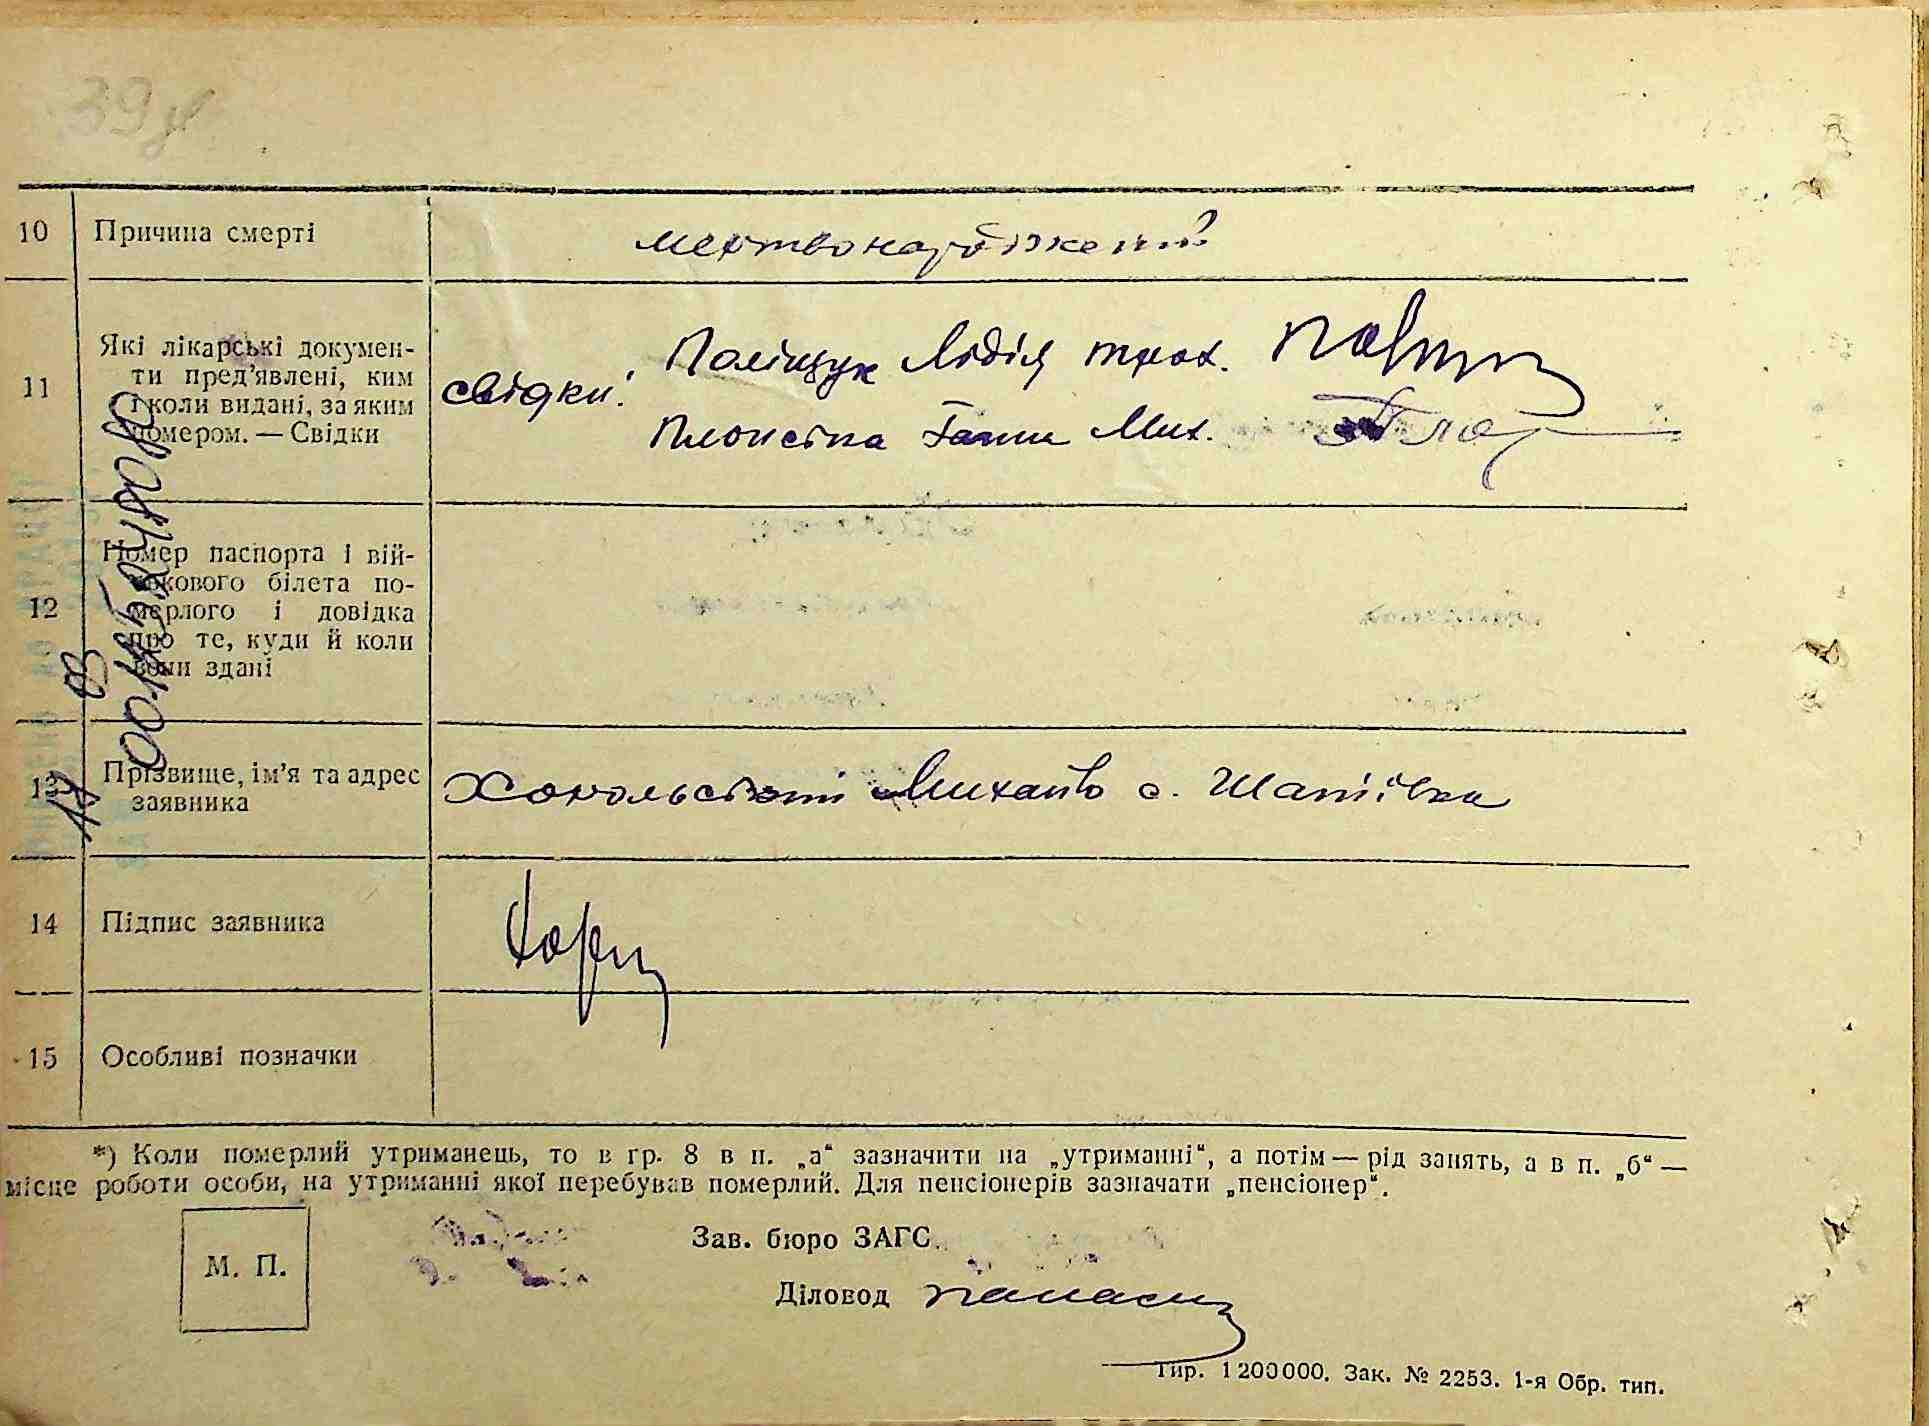 39
10 Причина смерті мертвонароджений
11 Які лікарські докумен-
ти пред’явлені, ким
і коли видані, за яким
номером. — Свідки
свідки: Поліщук Лідія
Ганна Мих.
12 Номер паспорта і вій-
ськового білета по-
мерлого і довідка
про те, куди й коли
вони здані
13 Прізвище, ім’я та адрес
заявника
Михайло с.
14 Підпис заявника
15 Особливі позначки
*) Коли померлий утриманець, то в гр. 8 в п. „а“ зазначити на „утриманні“, а потім — рід занять, а в п. „б“ —
місце роботи особи, на утриманні якої перебував померлий. Для пенсіонерів зазначати „пенсіонер“.
М. П.
Зав. бюро ЗАГС
Діловод
Тир. 1200000. Зак. № 2253. 1-я Обр. тип.